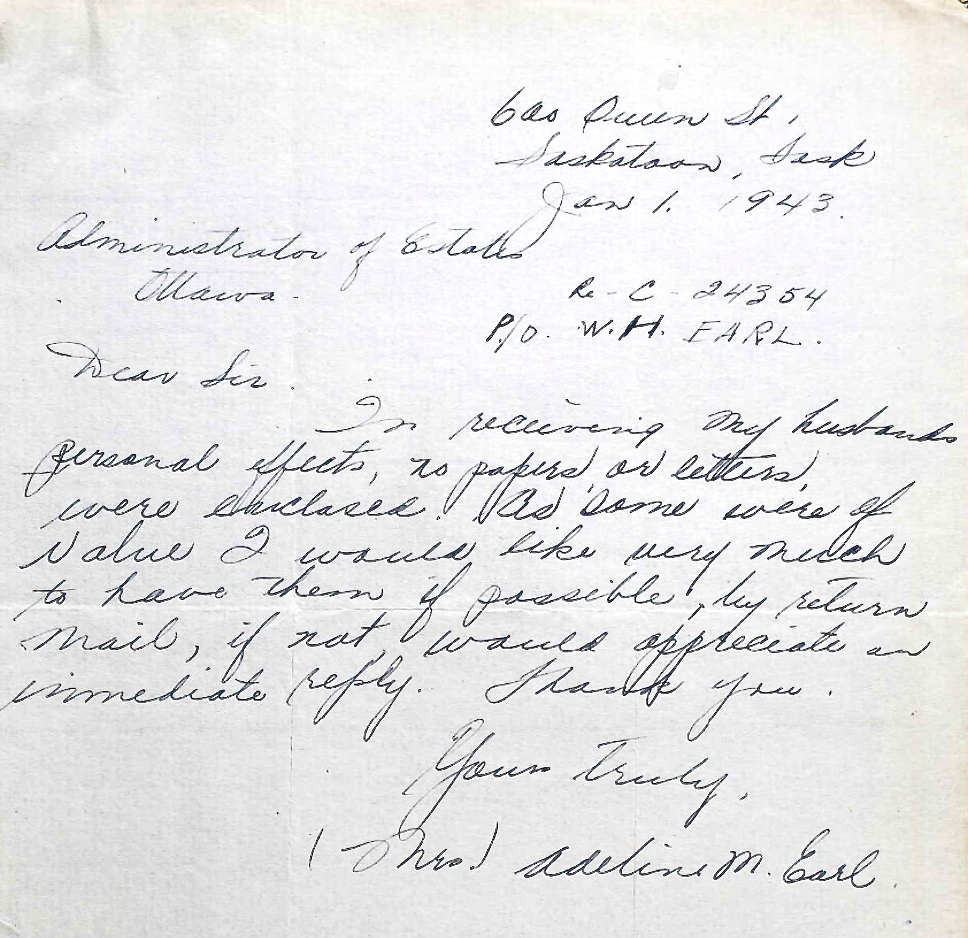 600 Queen St,
Saskatoon, Sask
Jan 1. 1943.
Administrator of Estates
Ottawa.
Re - C - 24354
P/O. W.H. EARL.
Dear Sir.
In receiving my husbands
personal effects, no papers, or letters,
were enclosed. As some were of
value I would like very much
to have them if possible, by return
mail, if not, would appreciate an
immediate reply. Thank you.
Yours truly,
(Mrs.) Adeline M. Earl.